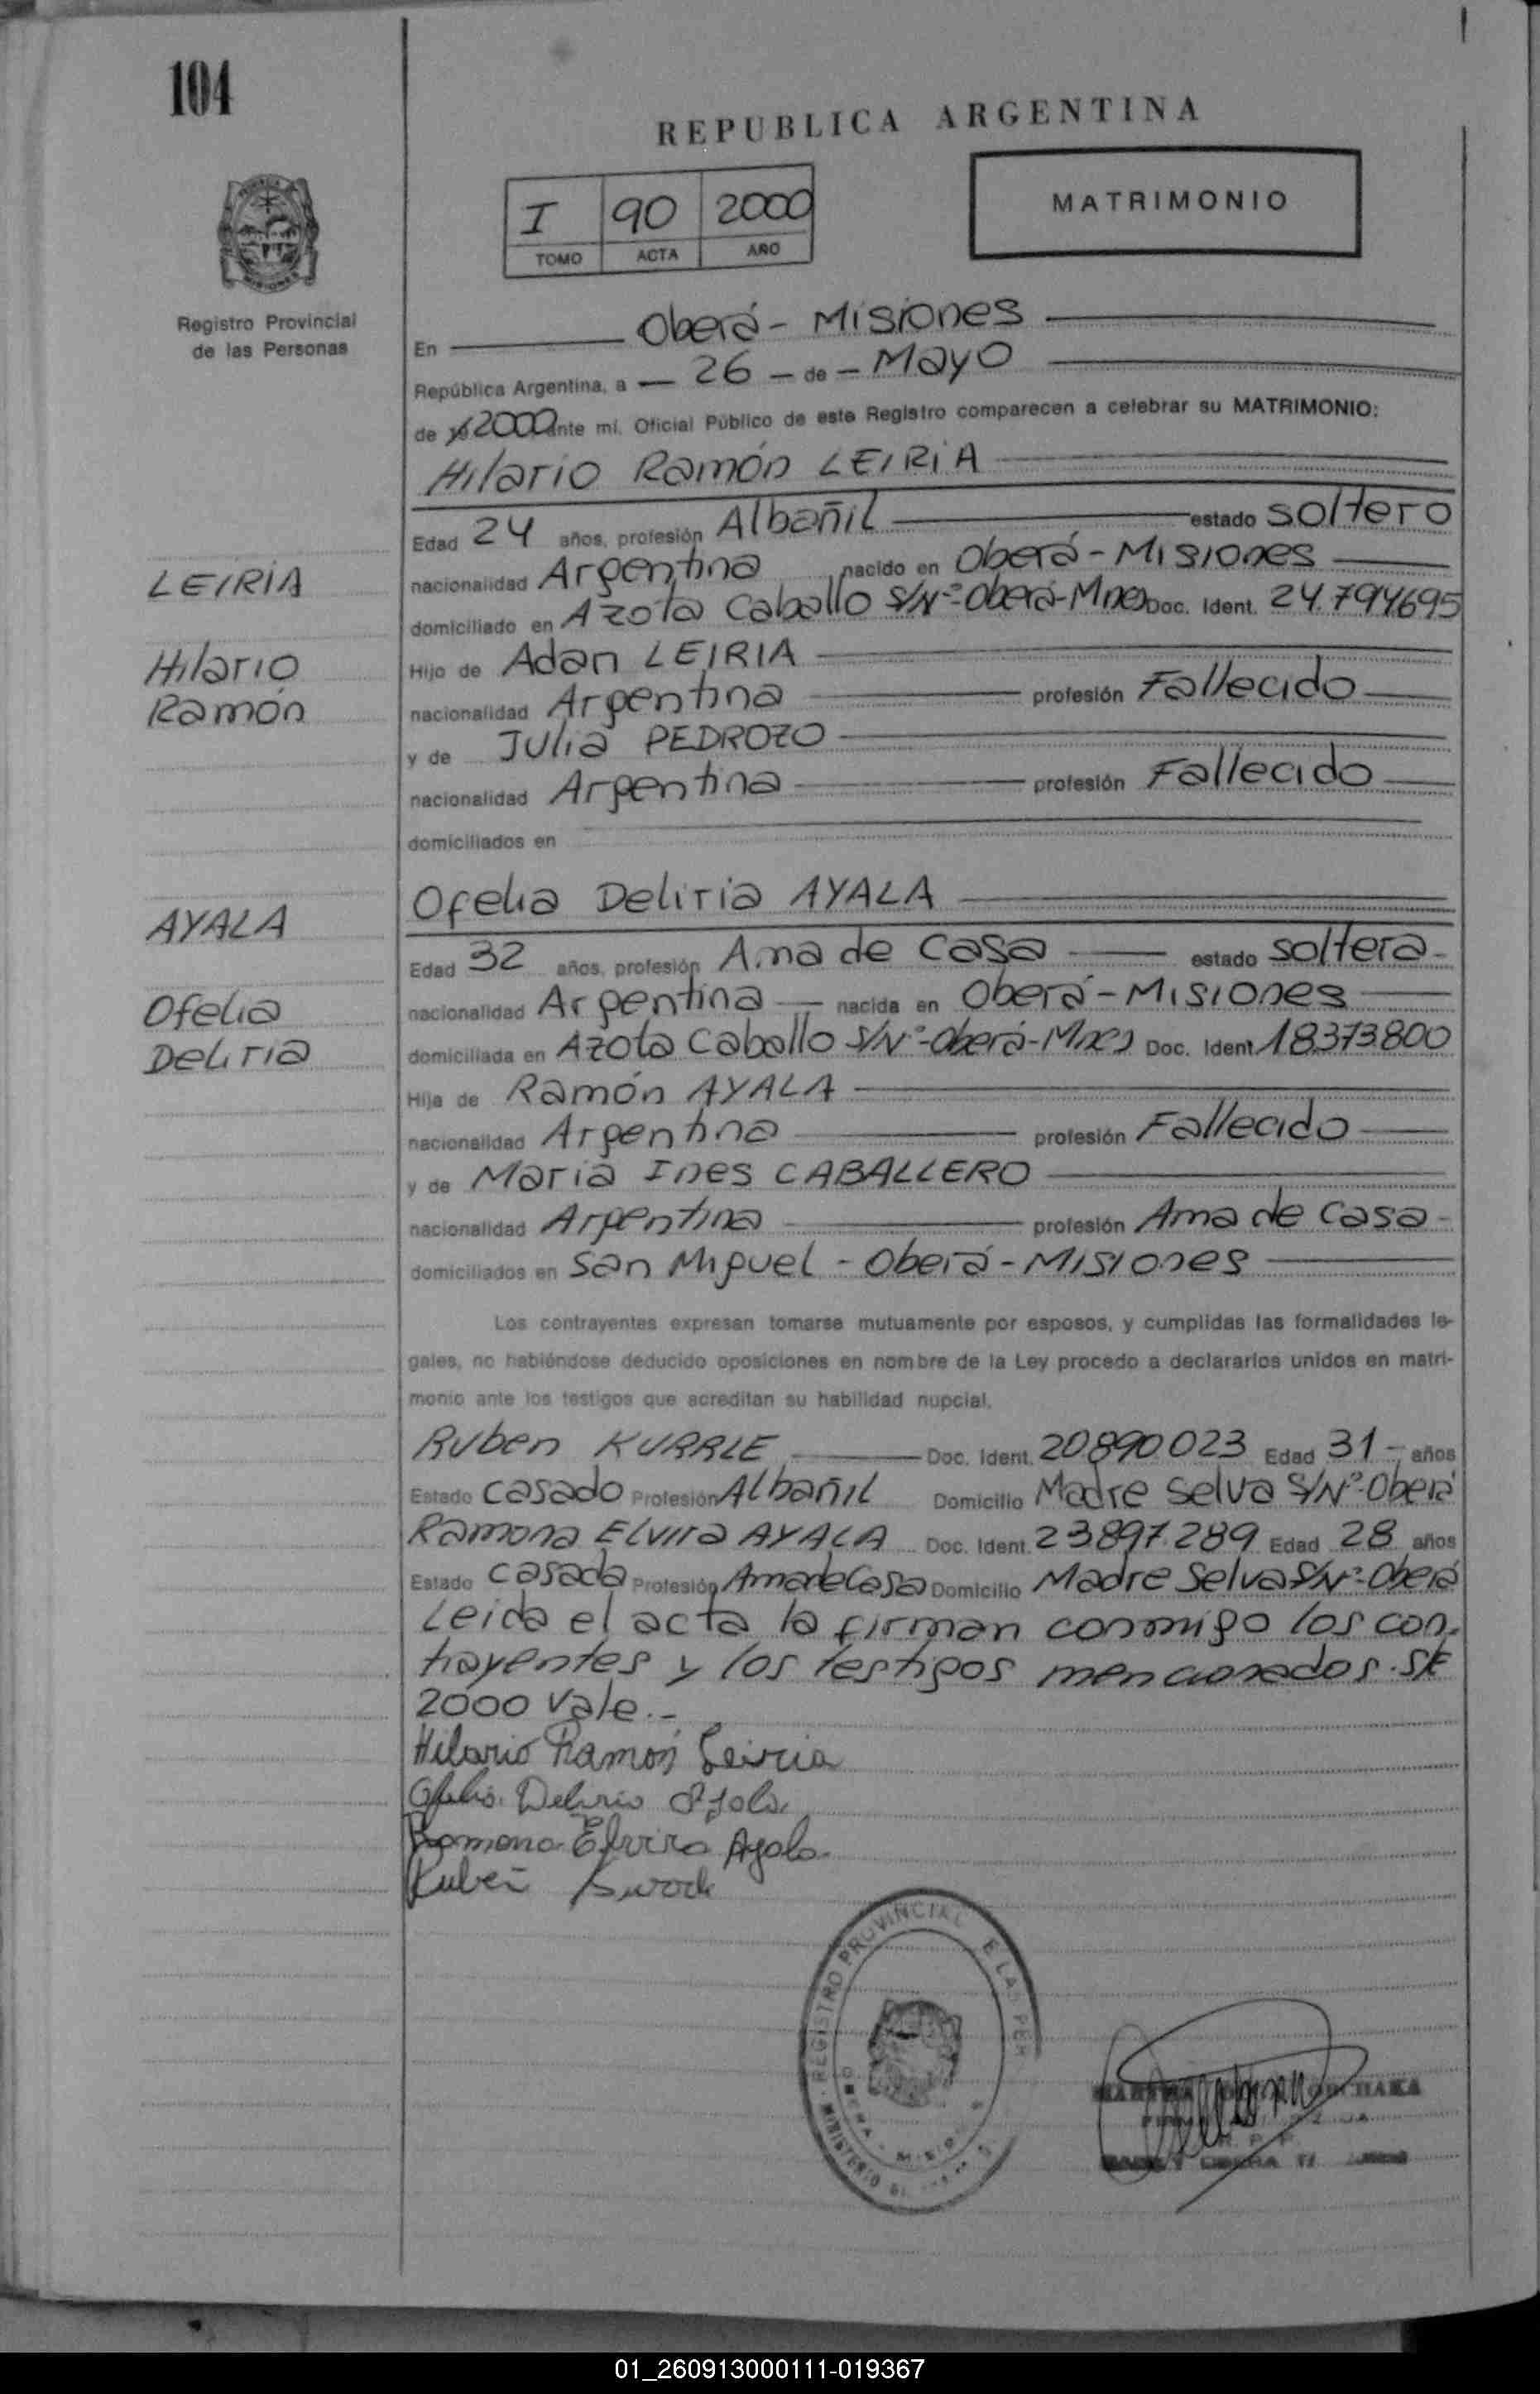 104
REPUBLICA ARGENTINA
I 90 2000
TOMO ACTA AÑO
MATRIMONIO
Registro Provincial
de las Personas
En Oberá - Misiones
República Argentina, a - 26 - de - Mayo
de 19 2000 ante mí, Oficial Público de este Registro comparecen a celebrar su MATRIMONIO:
Hilario Ramón LEIRIA
Edad 24 años, profesión Albañil estado soltero
LEIRIA
nacionalidad Argentina nacido en Oberá - Misiones
domiciliado en Azota Caballo S/Nº- Oberá - Mnes Doc. Ident. 24.794695
Hilario
Ramón
Hijo de Adan LEIRIA
nacionalidad Argentina profesión Fallecido
y de Julia PEDROZO
nacionalidad Argentina profesión Fallecido
domiciliados en
AYALA
Ofelia Deliria AYALA
Edad 32 años, profesión Ama de Casa estado soltera -
Ofelia
Deliria
nacionalidad Argentina nacida en Oberá - Misiones
domiciliada en Azota Caballo S/Nº- Oberá - Mnes Doc. Ident. 18373800
Hija de Ramón AYALA
nacionalidad Argentina profesión Fallecido
y de Maria Ines CABALLERO
nacionalidad Argentina profesión Ama de Casa -
domiciliados en San Miguel - Oberá - Misiones
Los contrayentes expresan tomarse mutuamente por esposos, y cumplidas las formalidades le-
gales, no habiéndose deducido oposiciones en nombre de la Ley procedo a declararlos unidos en matri-
monio ante los testigos que acreditan su habilidad nupcial.
Ruben KURRLE Doc. Ident. 20890023 Edad 31 - años
Estado casado Profesión Albañil Domicilio Madre Selva S/Nº- Oberá
Ramona Elvira AYALA Doc. Ident. 23897.289 Edad 28 años
Estado casada Profesión Ama de Casa Domicilio Madre Selva S/Nº- Oberá
Leida el acta la firman conmigo los con-
trayentes y los testigos mencionados. S/E
2000 Vale.-
Hilario Ramón Leiria
Ofelia Deliria Ayala
Ramona Elvira Ayala
Ruben
REGISTRO PROVINCIAL E LAS PER
MINISTERIO
01_260913000111-019367